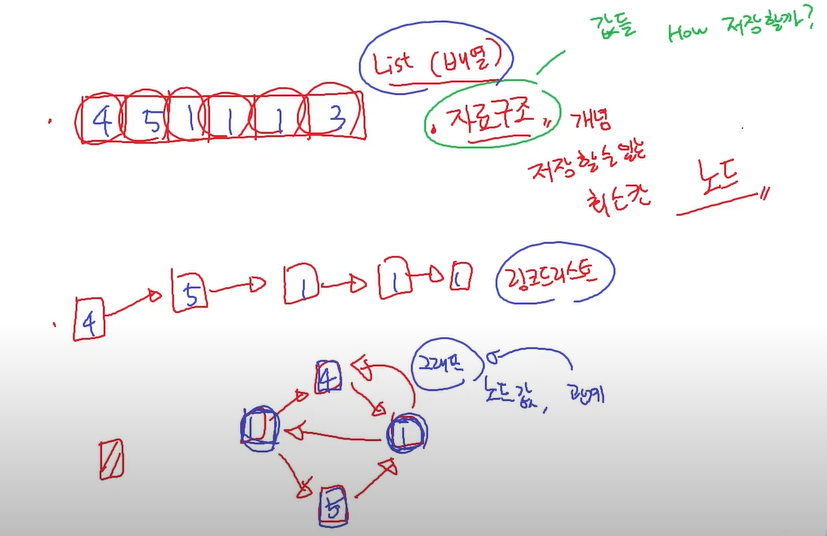 값들 How 저장할까?
List (배열)
4 5 1 1 1 3
. 자료구조 〃 개념
저장할 수 있는
최소칸 노드 〃
4 5 1 1 1
링크드리스트
그래프
노드 값, 관계
4
1 1
5